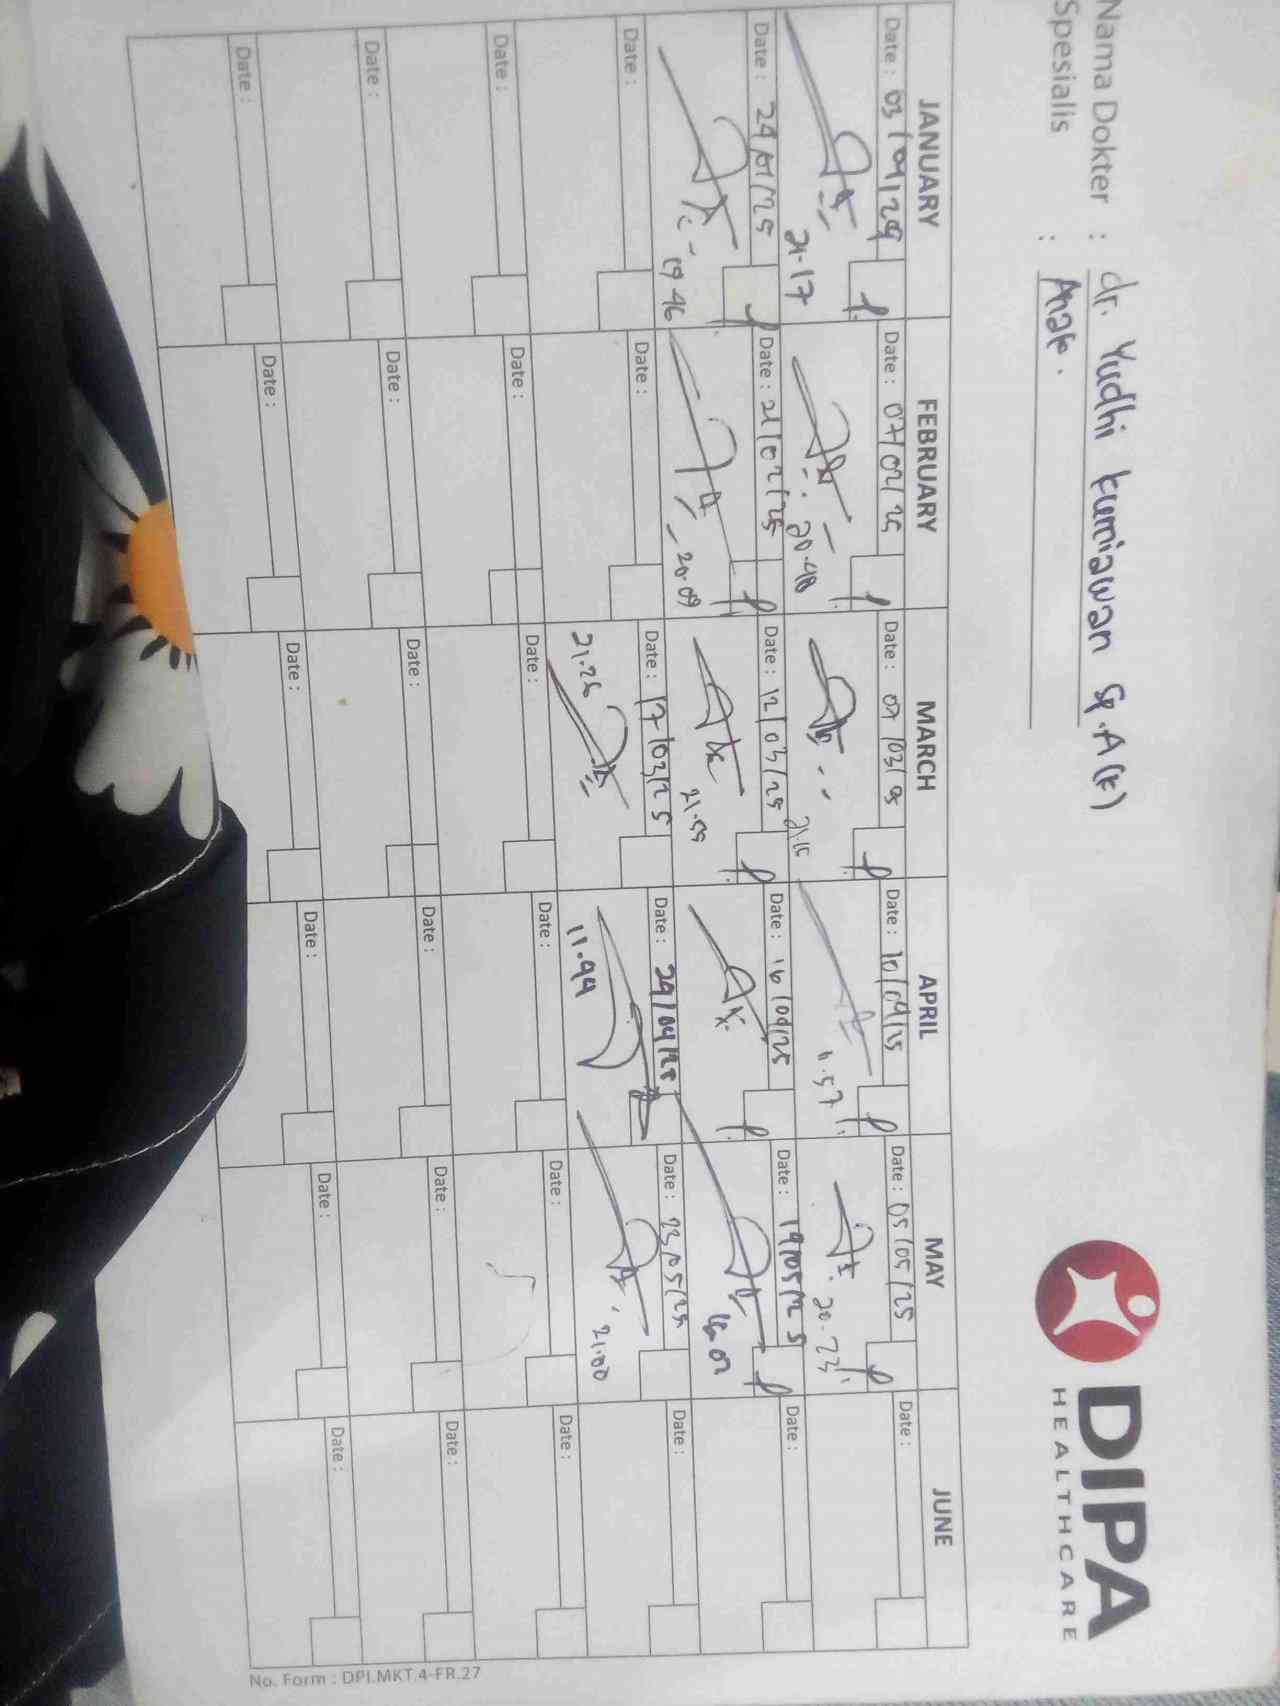 DIPA
HEALTHCARE
Nama Dokter : dr. Yudhi kurniawan Sp.A(K)
Spesialis : Anak.
JANUARY FEBRUARY MARCH APRIL MAY JUNE
Date : Date : 07/02/25 Date : 07/03/25 Date : 10/04/25 Date : 05/05/25 Date :
21.17 20.48 21.15 11.57 20.23
Date : 24/01/25 Date : 21/02/25 Date : 12/03/25 Date : 16/04/25 Date : 19/05/25 Date :
19.46 20.09 21.59
Date : Date : Date : 17/03/25 Date : 29/04/25 Date : 23/05/25 Date :
21.25 11.44 21.00
Date : Date : Date : Date : Date : Date :
Date : Date : Date : Date : Date : Date :
Date : Date : Date : Date : Date : Date :
No. Form : DPI.MKT.4-FR.27